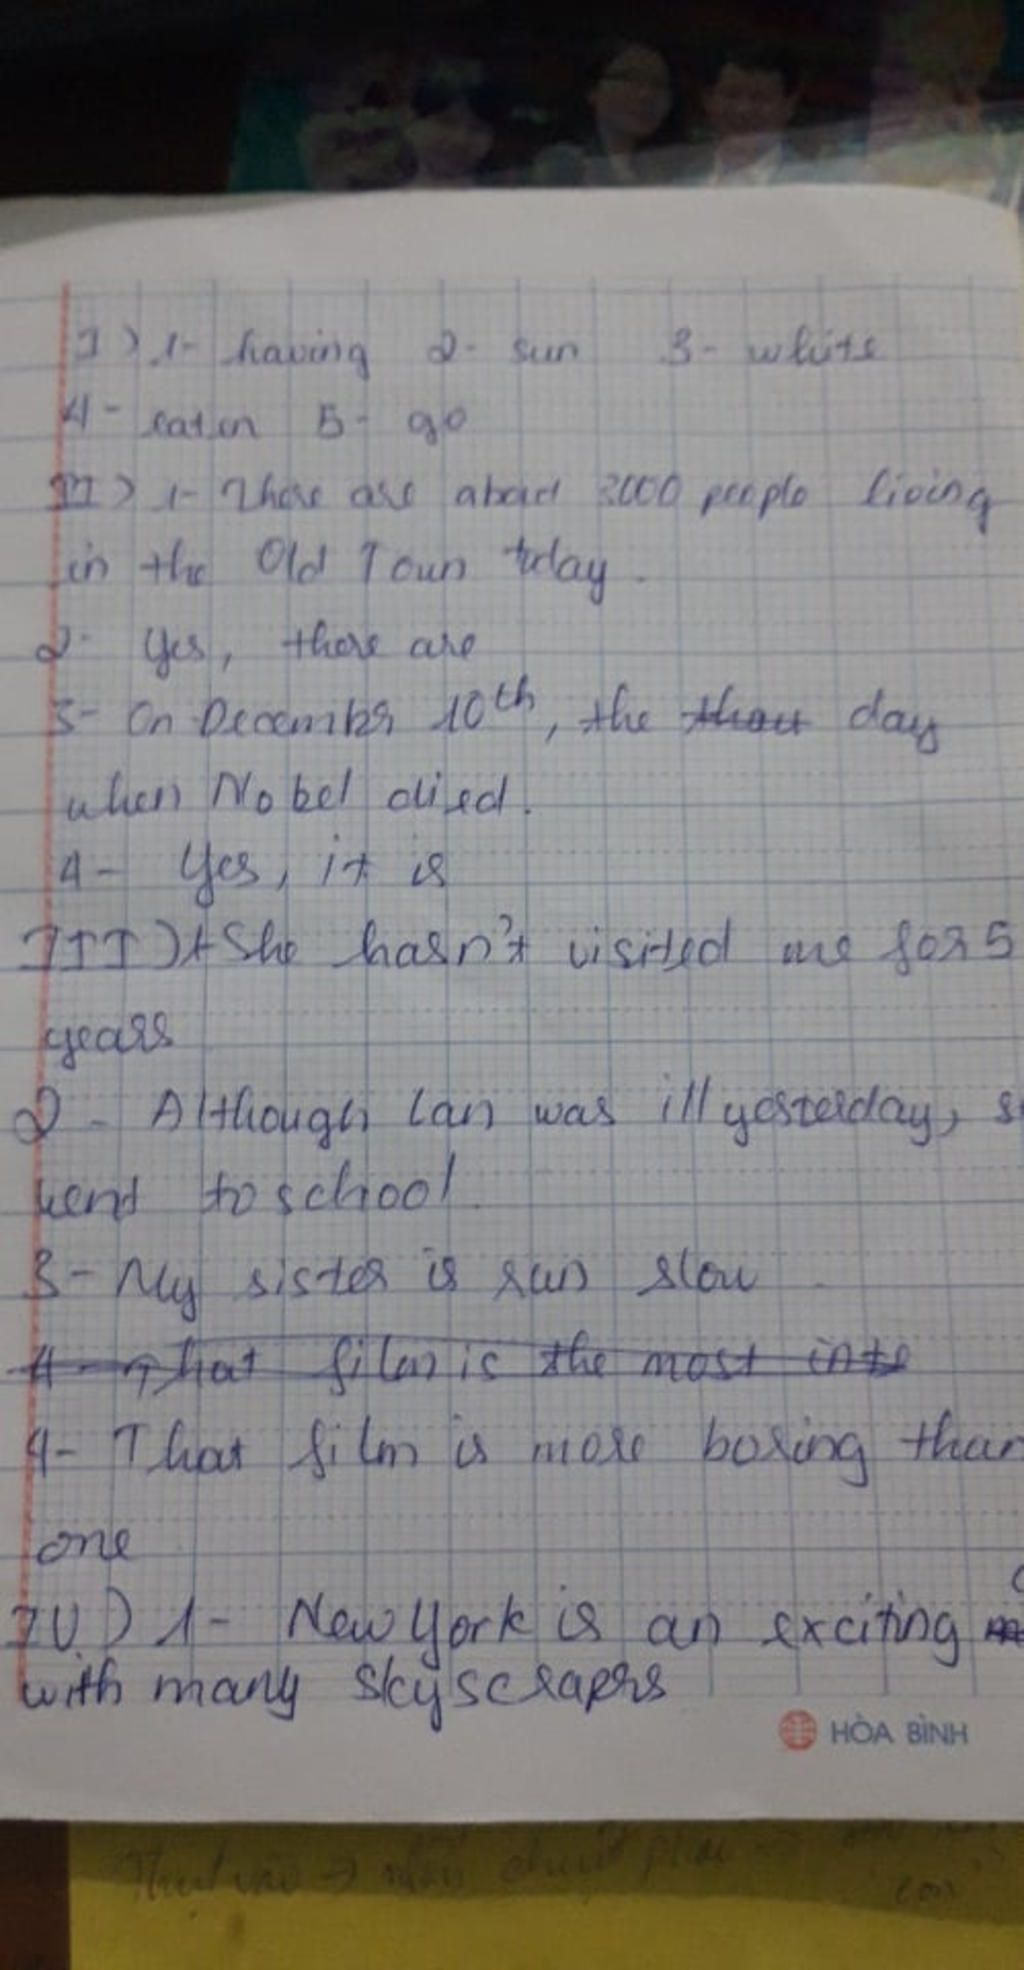 I) 1- having 2- sun 3- white
4- eaten 5- go
II) 1- There are about 3000 people living
in the Old Town today.
2- Yes, there are
3- On December 10th, the day
when Nobel died.
4- Yes, it is
III) 1- She hasn't visited me for 5
years
2- Although Lan was ill yesterday, s
went to school.
3- My sister is run slow
4- That film is the most inte
4- That film is more boring than
one
IV) 1- New York is an exciting
with many skyscrapers
HÒA BÌNH